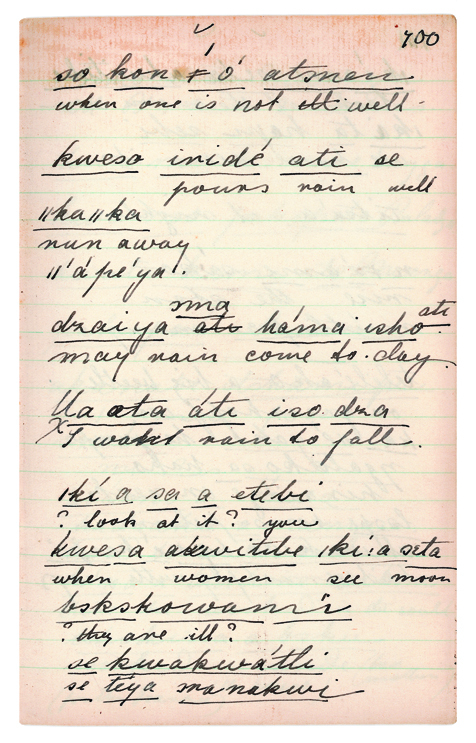 700
so kon ǂ ó atsmen
when one is not ill well.
kweso iridé ati se
pours rain will
ǁkaǁka
run away
ǁ'á pé'ya!
ma ati
dzaiya ati háma isho.
may rain come to.day.
Ua ata áti iso dza
X I want rain to fall.
ǀkí a sa a etebi
? look at it? you
kwesa akwitibe ǀkí:a seta
when women see moon
bskskowami
? they are ill?
se kwakwátli
se téya manakwi